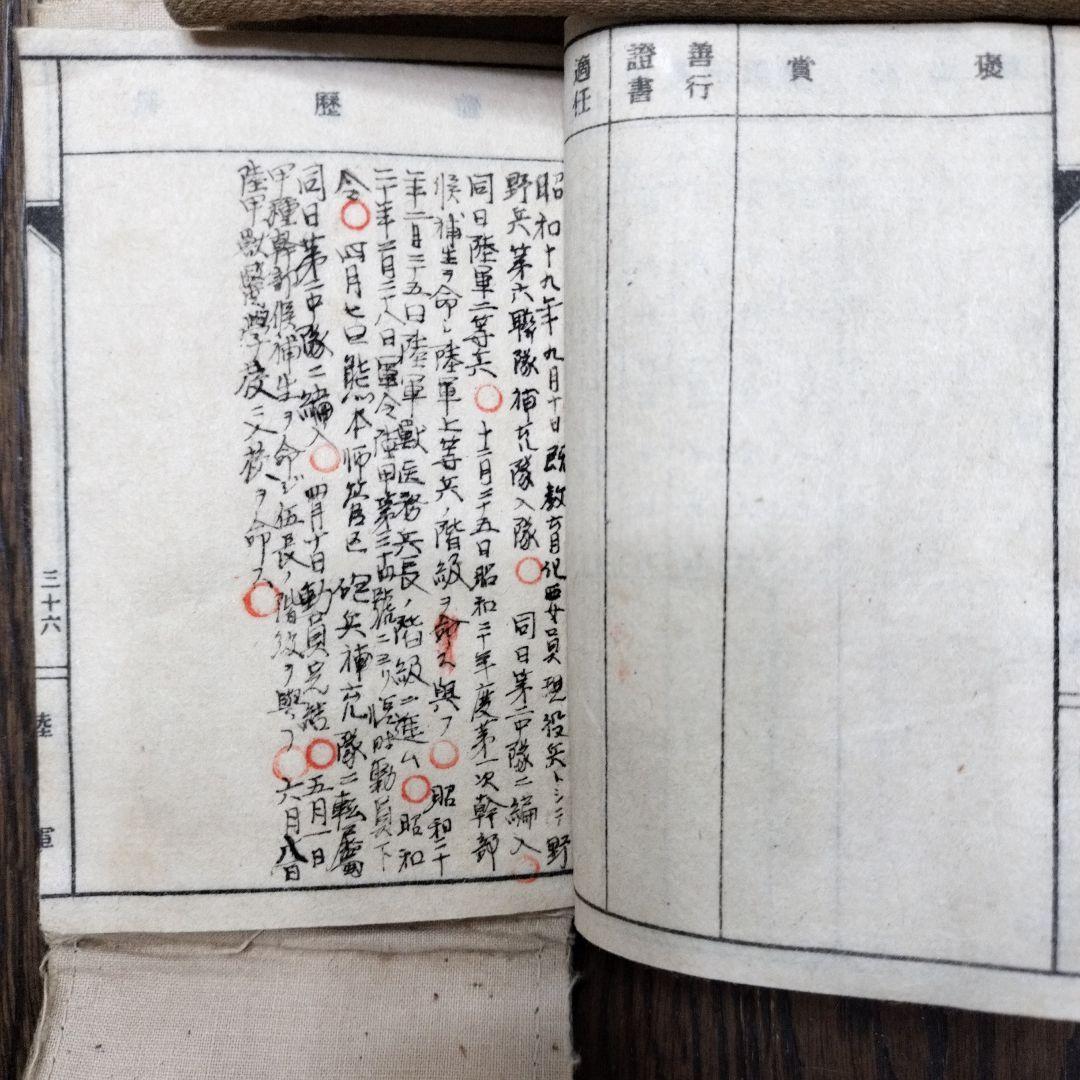 褒
賞
善行
證書
適任
歷
昭和十九年九月十日 既教育 現役兵トシテ野
野兵第六聯隊補充隊入隊 同日第二中隊ニ編入
同日陸軍二等兵 十二月二十五日昭和二十年度第一次幹部
候補生ヲ命シ陸軍上等兵ノ階級ヲ與フ 昭和二十
年二月二十五日陸軍獸医務兵長ノ階級ニ進ム 昭和
二十年二月二十八日軍令陸甲第三十四號ニヨリ臨時動員下
令 四月七日熊本師管区砲兵補充隊ニ転属
同日第二中隊ニ編入 四月十日動員完結 五月一日
甲種幹部候補生ヲ命シ伍長ノ階級ヲ與フ 六月八日
陸軍獸醫學校ニ入校ヲ命ス
三十六
陸
軍